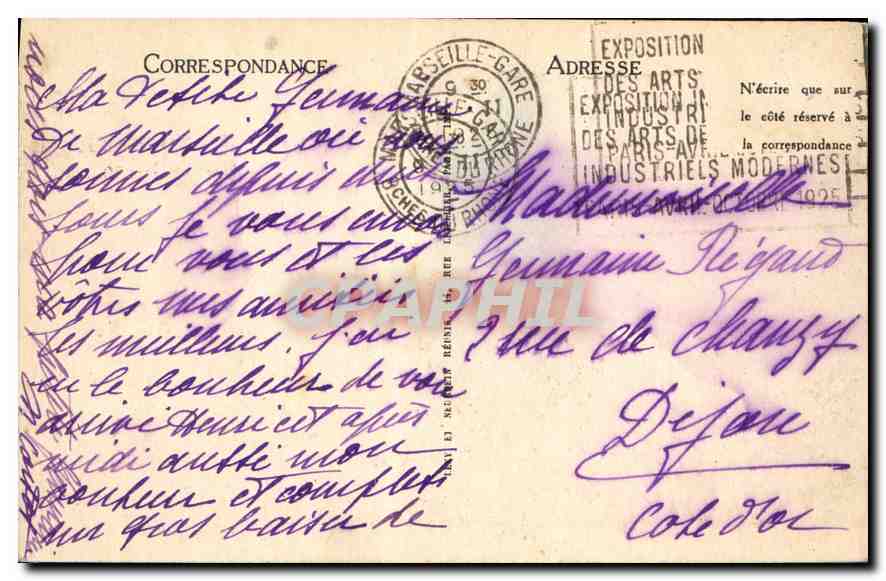 CORRESPONDANCE
Ma Petite Germaine
De Marseille où nous
sommes depuis deux
jours je vous envoie
pour vous et les
vôtres mes amitiés
les meilleurs. J'ai
eu le bonheur de voir
arrivé Henri cet après
midi aussi mon
bonheur est complet
un gros baiser de
ADRESSE
N'écrire que sur
le côté réservé à
la correspondance
Mademoiselle
Germaine Rigaud
2 rue de Chanzy
Dijon
Cote d'Or
MARSEILLE-GARE
9 30
BCHES DU RHONE
EXPOSITION
DES ARTS
INDUSTRI
PARIS-AVRI
EXPOSITION IN
DES ARTS DE
INDUSTRIELS MODERNES
PARIS-AVRIL-OCTOBRE 1925
LEVY ET NEURDEIN RÉUNIS, 44, RUE LETELLIER, PARIS
CPAPHIL